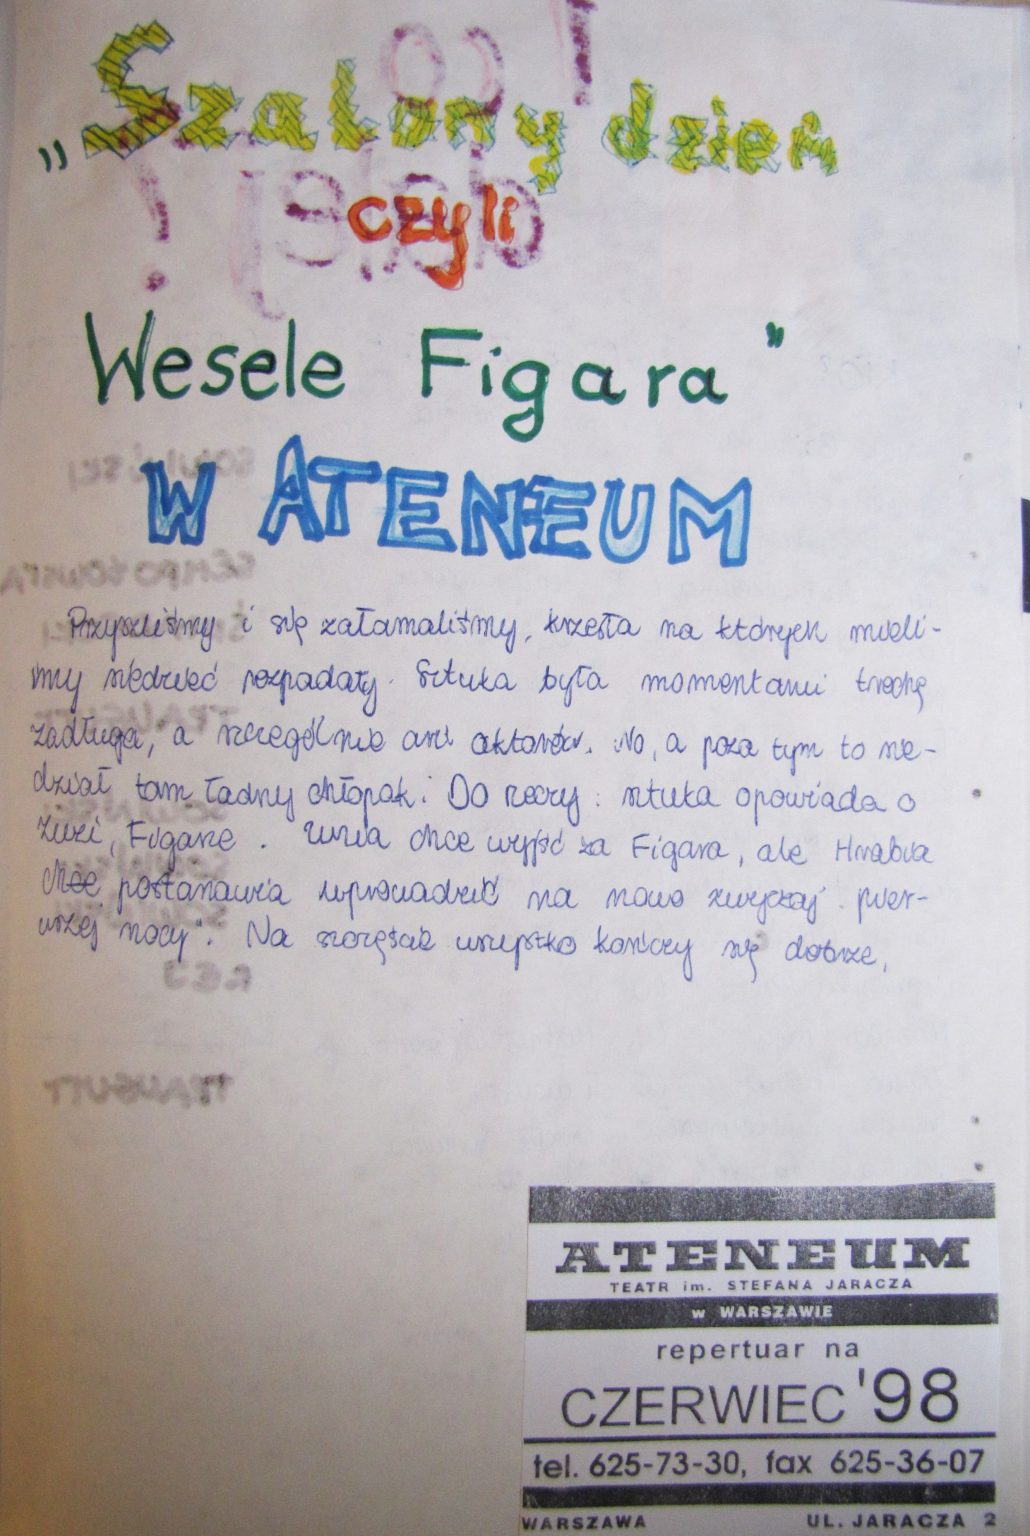 „Szalony dzień
czyli
Wesele Figara"
W ATENEUM
Przyszliśmy i się załamaliśmy, krzesła na których mieli-
śmy siedzieć rozpadały. Sztuka była momentami trochę
zadługa, a szczególnie aktorów. No, a poza tym to sie-
dział tam ładny chłopak! Do rzeczy: sztuka opowiada o
Zuzi, Figarze. Zuzia chce wyjść za Figara, ale Hrabia
chce postanawia wprowadzić na nowo zwyczaj "pier-
wszej nocy". Na szczęście wszystko kończy się dobrze.
ATENEUM
TEATR im. STEFANA JARACZA
w WARSZAWIE
repertuar na
CZERWIEC '98
tel. 625-73-30, fax 625-36-07
WARSZAWA UL. JARACZA 2